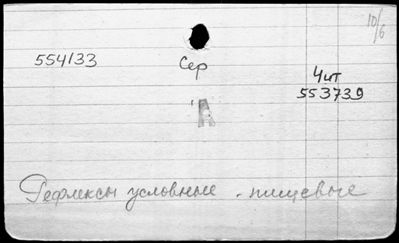 10/6
554133 Сер
Чит
553739
А
Рефлексы условные - пищевые